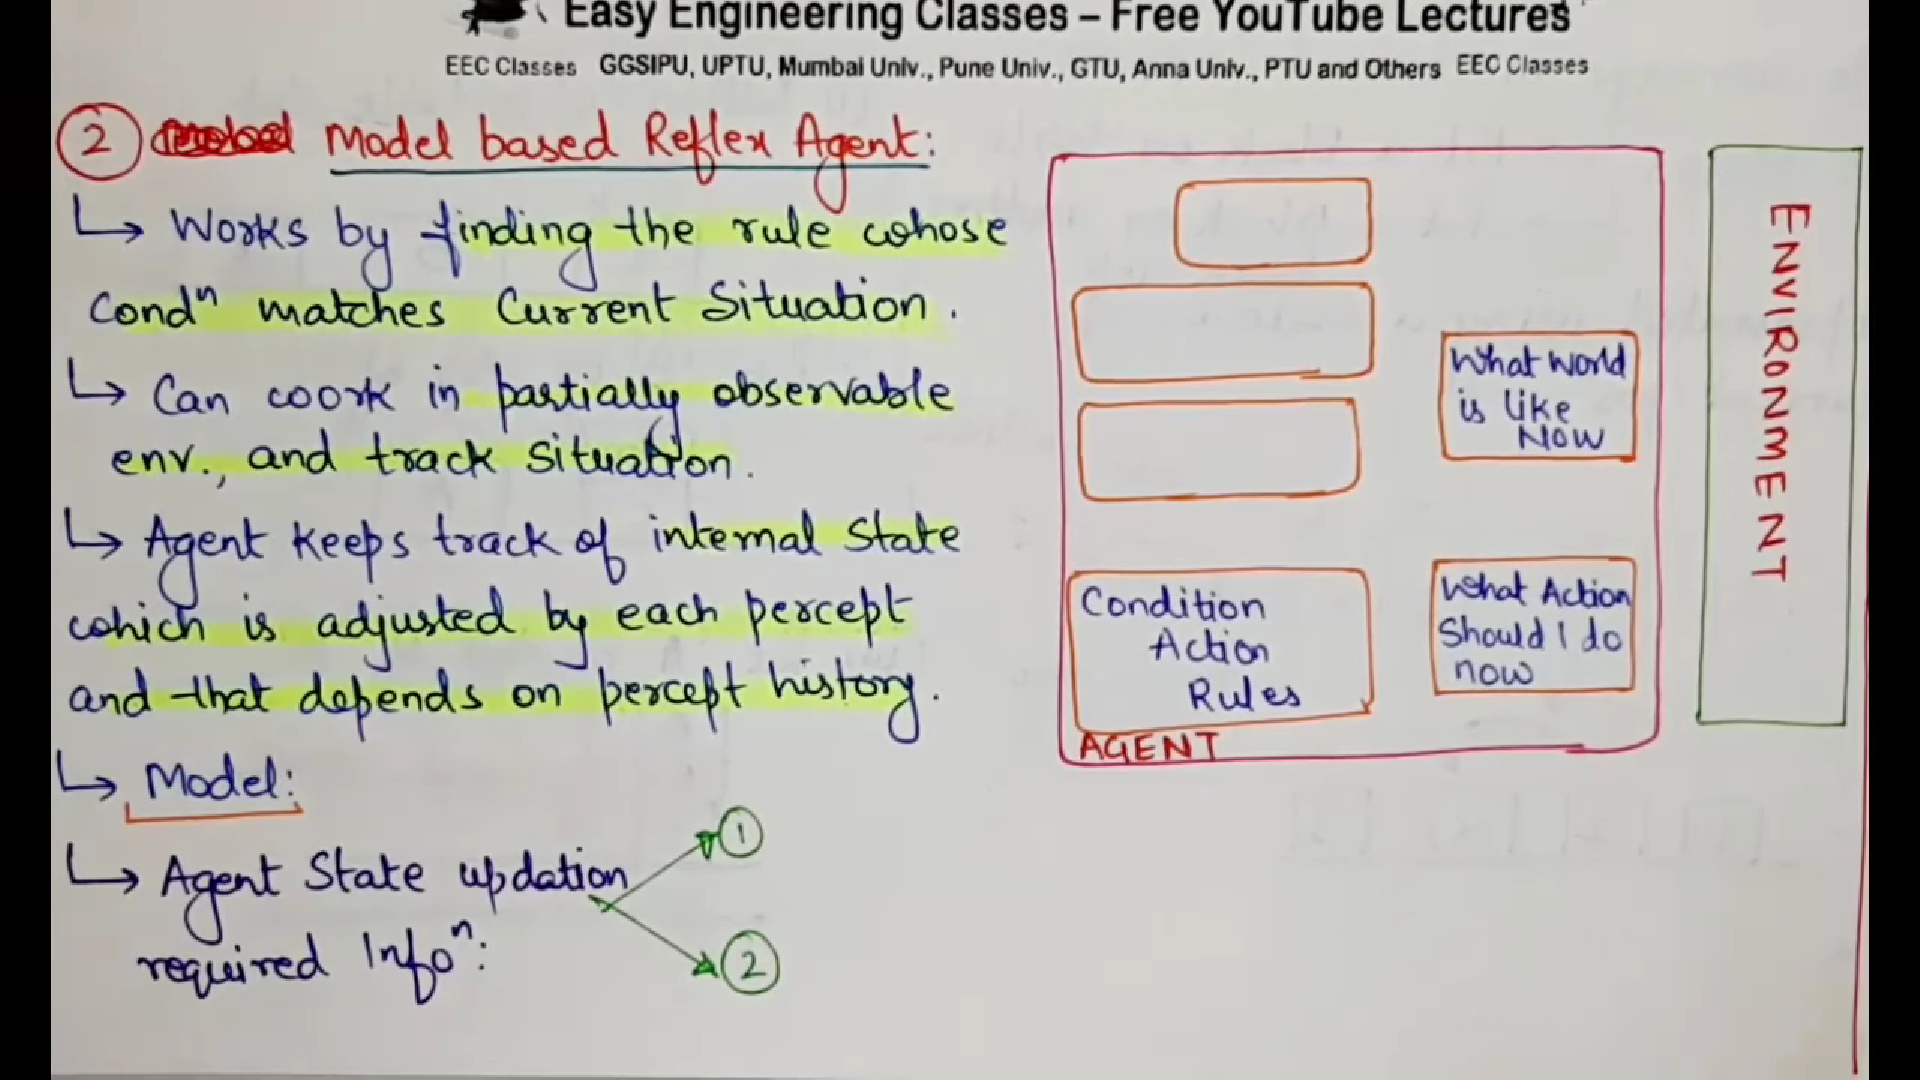 Easy Engineering Classes – Free YouTube Lectures
EEC Classes GGSIPU, UPTU, Mumbai Univ., Pune Univ., GTU, Anna Univ., PTU and Others EEC Classes
2 Model based Reflex Agent:
↳ Works by finding the rule whose
Condⁿ matches Current Situation.
↳ Can work in partially observable
env., and track situation.
↳ Agent keeps track of internal State
which is adjusted by each percept
and that depends on percept history.
↳ Model:
↳ Agent State updation
required Infoⁿ:
1
2
What world
is like
Now
Condition
Action
Rules
What Action
Should I do
now
AGENT
ENVIRONMENT